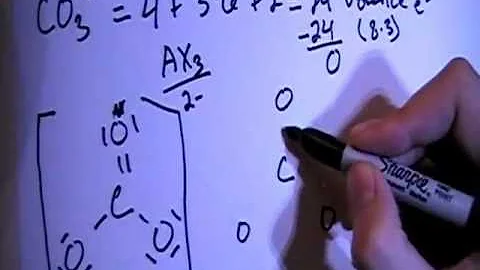 CO₃ = 4 + 3(6) + 2 = 24 valence e⁻
-24 (8·3)
0
AX₃
2-
O
O
C
C
O O
O O
Sharpie